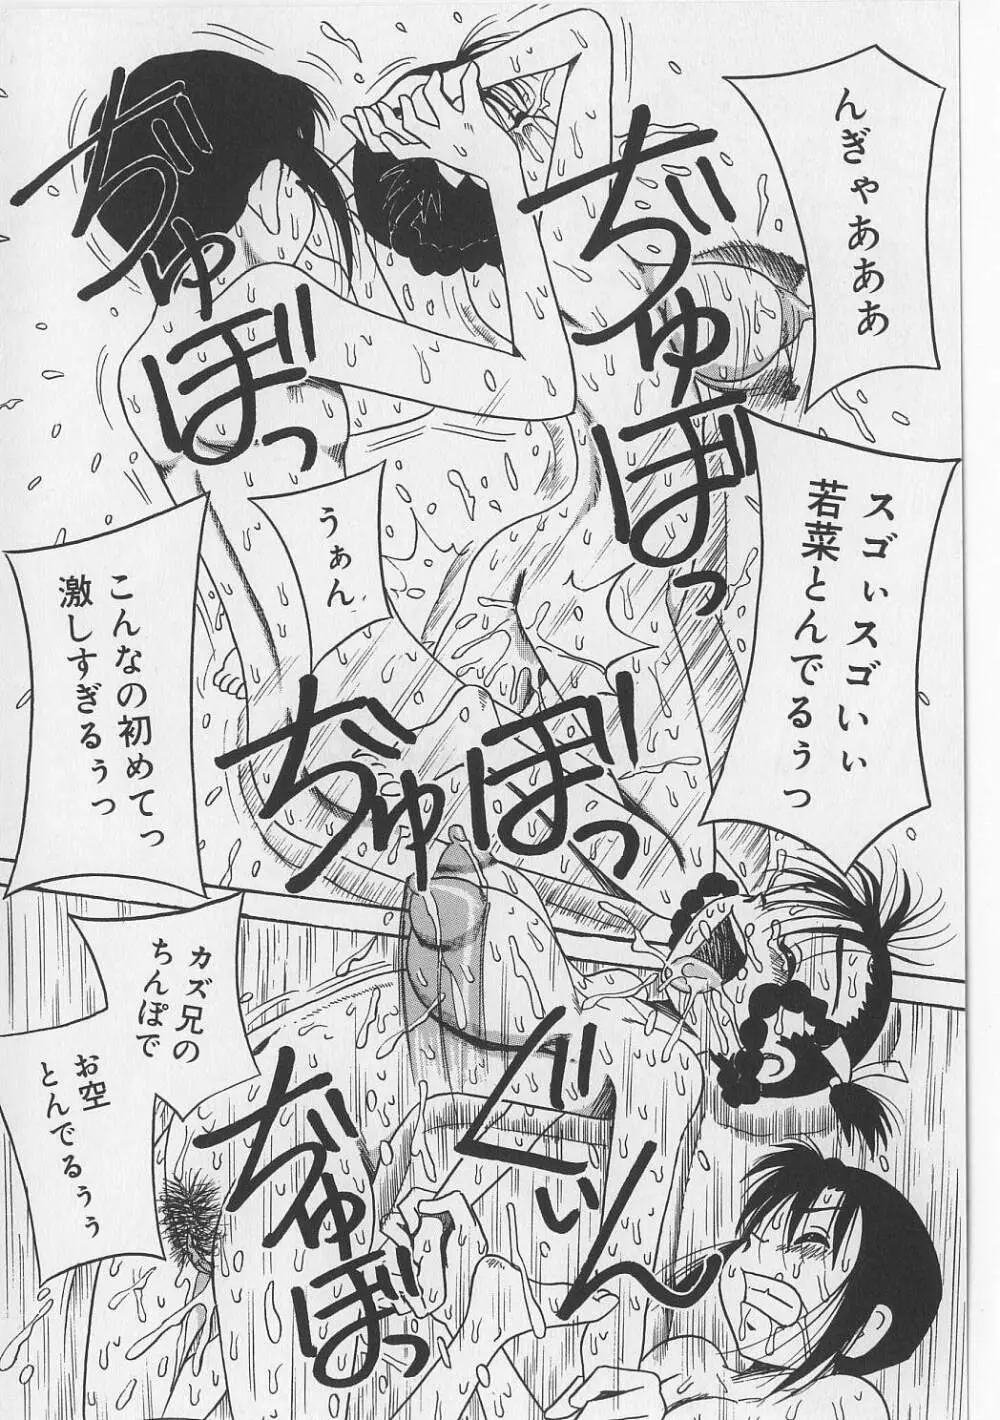 んぎゃあああ
スゴぃスゴいぃ
若菜とんでるぅっ
ぢゅぼっ
ぢゅぼっ
うぁん
こんなの初めてっ
激しすぎるぅっ
ぢゅぼっ
カズ兄の
ちんぽで
お空
とんでるぅぅ
ぢゅぼっ
ぐぃん